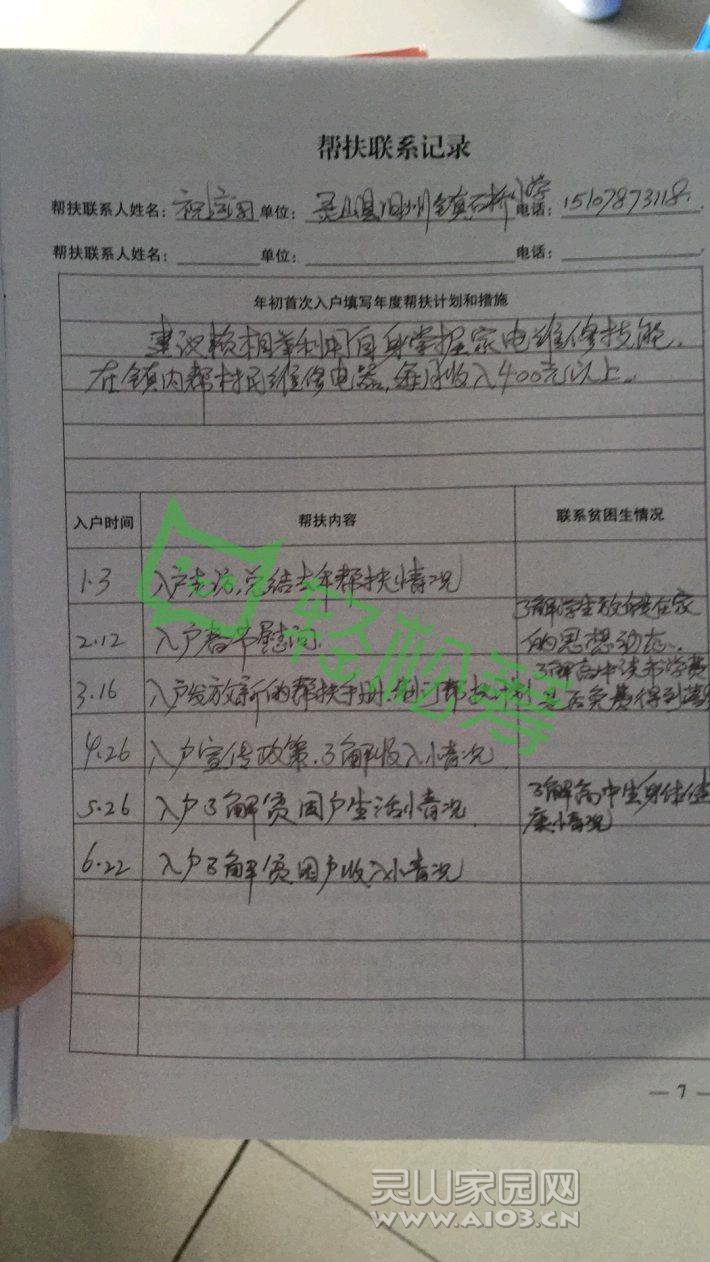 帮扶联系记录
帮扶联系人姓名： 单位：灵山县旧州镇石桥小学 电话：15107873118
帮扶联系人姓名： 单位： 电话：
年初首次入户填写年度帮扶计划和措施
建议赖相 利用自身掌握家电维修技能，
在镇内帮村民维修电器，每月收入400元以上。
入户时间 帮扶内容 联系贫困生情况
1.3 入户走访，总结去年帮扶情况
2.12 入户春节慰问 了解学生放假在家的思想动态
3.16 入户发放新的帮扶手册，制订帮扶计划 了解高中读书学费是否免费得到
4.26 入户宣传政策，了解收入情况
5.26 入户了解贫困户生活情况 了解高中生身体健康情况
6.22 入户了解贫困户收入情况
— 7 —
轻松筹
灵山家园网
WWW.A103.CN